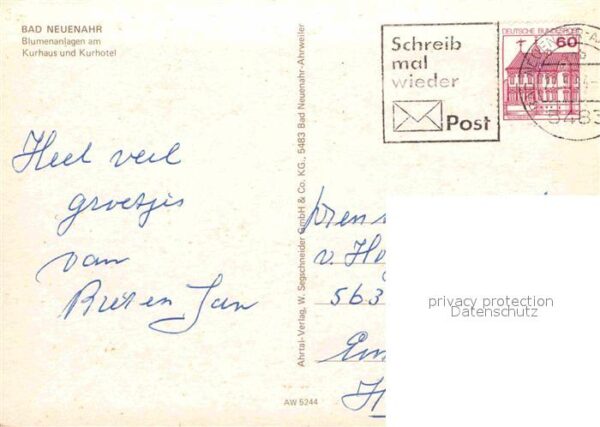 BAD NEUENAHR
Blumenanlagen am
Kurhaus und Kurhotel
Schreib
mal
wieder
Post
DEUTSCHE BUNDESPOST
60
5483
Heel veel
groetjes
van
en Jan
Ahrtal-Verlag, W. Segschneider GmbH & Co. KG., 5483 Bad Neuenahr-Ahrweiler
v. He
563
AW 5244
privacy protection
Datenschutz